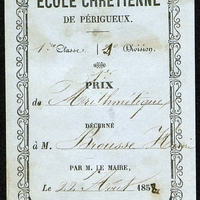 ECOLE CHRÉTIENNE
DE PÉRIGUEUX.
1ère Classe 2e Division.
1er
PRIX
de Arithmétique
DÉCERNÉ
A M. Brousse Henri
PAR M. LE MAIRE,
Le 22 Août 185